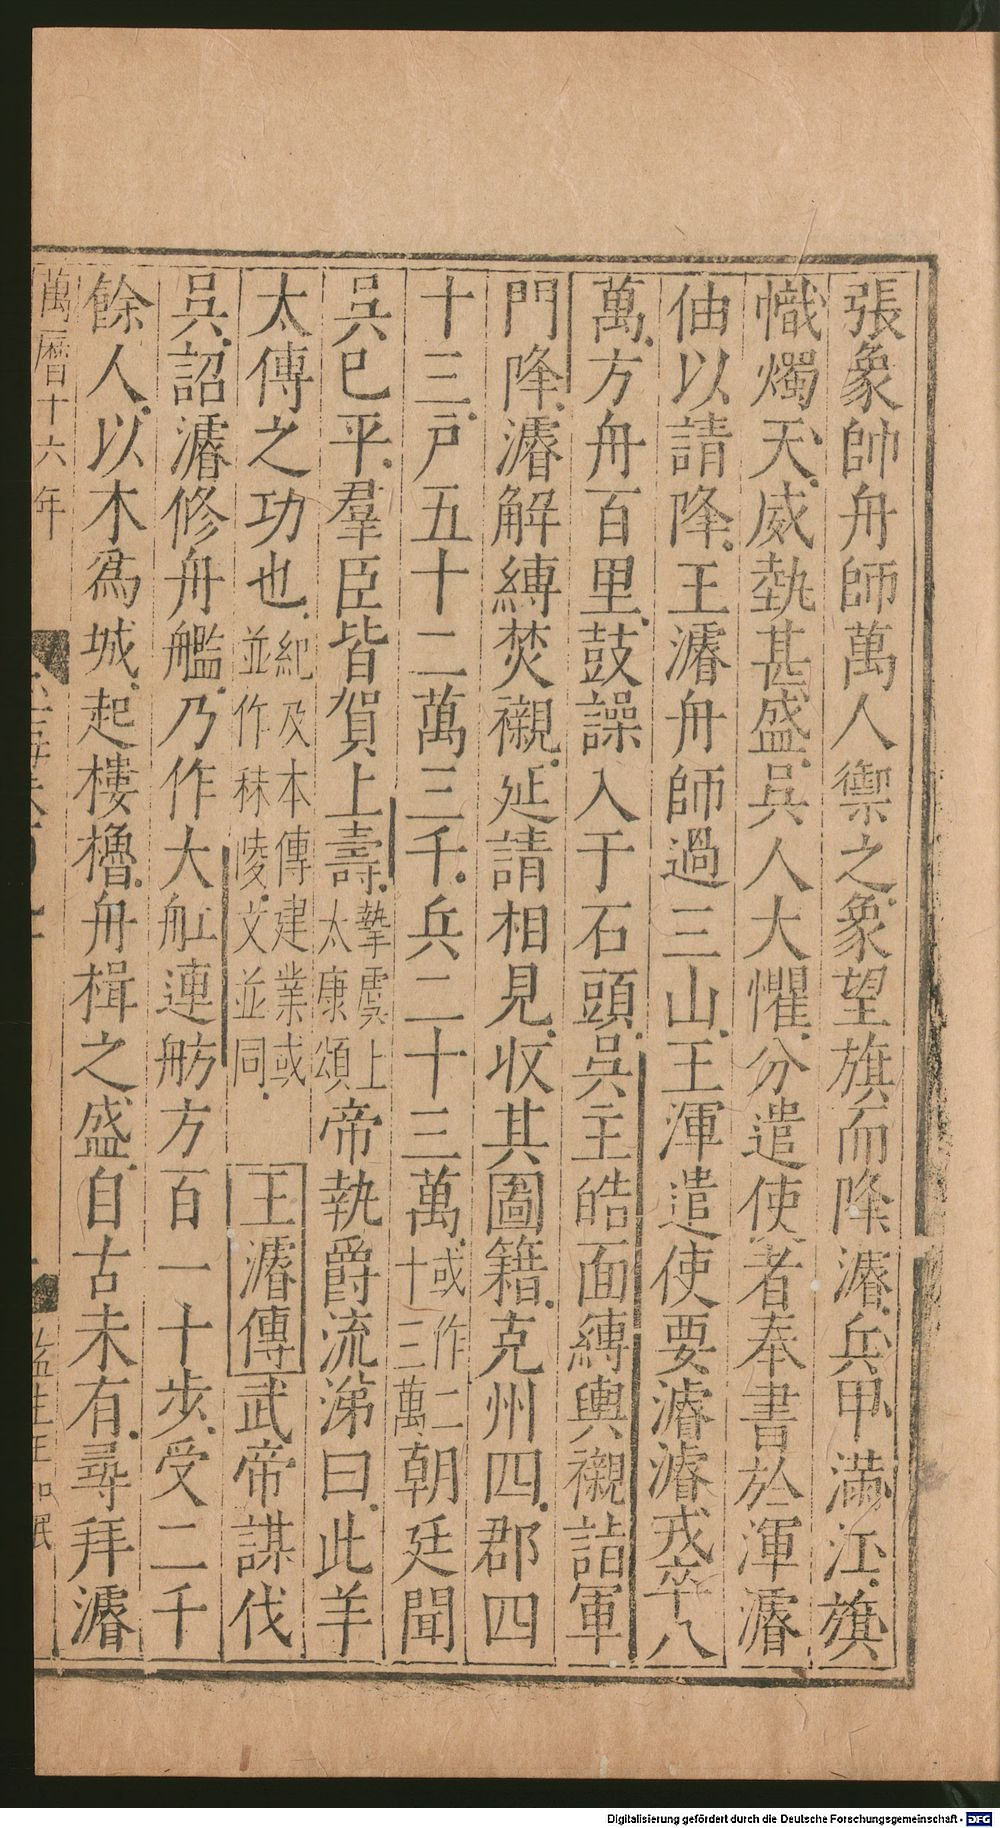 張象帥舟師萬人禦之象望旗而降濬兵甲滿江旗
幟燭天威埶甚盛吳人大懼分遣使者奉書於渾濬
伷以請降王濬舟師過三山王渾遣使要濬濬戎卒八
萬方舟百里鼓譟入于石頭吳主皓面縛輿櫬詣軍
門降濬解縛焚櫬延請相見收其圖籍克州四郡四
十三戶五十二萬三千兵二十三萬或作二十三萬朝廷聞
吳已平羣臣皆賀上壽摯虞上太康頌帝執爵流涕曰此羊
太傅之功也紀及本傳建業或並作秣陵文並同王濬傳武帝謀伐
吳詔濬修舟艦乃作大舡連舫方百一十步受二千
餘人以木爲城起樓櫓舟楫之盛自古未有尋拜濬
萬曆十六年
Digitalisierung gefördert durch die Deutsche Forschungsgemeinschaft - DFG